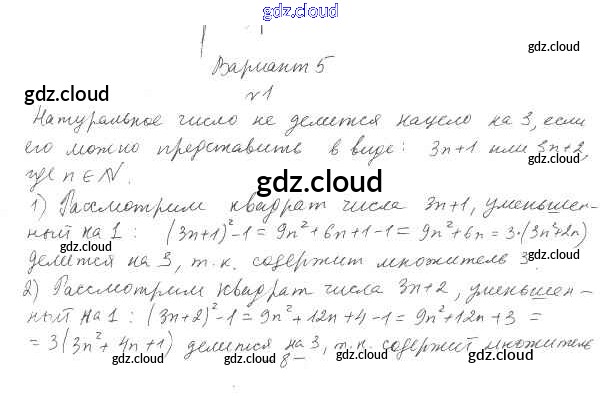 gdz.cloud
Вариант 5
gdz.cloud
№1
gdz.cloud
Натуральное число не делится нацело на 3, если
его можно представить в виде: 3n+1 или 3n+2,
где n ∈ N.
gdz.cloud
gdz.cloud
1) Рассмотрим квадрат числа 3n+1, уменьшен-
ный на 1: (3n+1)²-1 = 9n²+6n+1-1 = 9n²+6n = 3·(3n²+2n)
gdz.cloud
gdz.cloud
делится на 3, т.к. содержит множитель 3.
2) Рассмотрим квадрат числа 3n+2, уменьшен-
gdz.cloud
gdz.cloud
ный на 1: (3n+2)²-1 = 9n²+12n+4-1 = 9n²+12n+3 =
= 3(3n²+4n+1) делится на 3, т.к. содержит множитель
gdz.cloud
gdz.cloud
gdz.cloud
8-